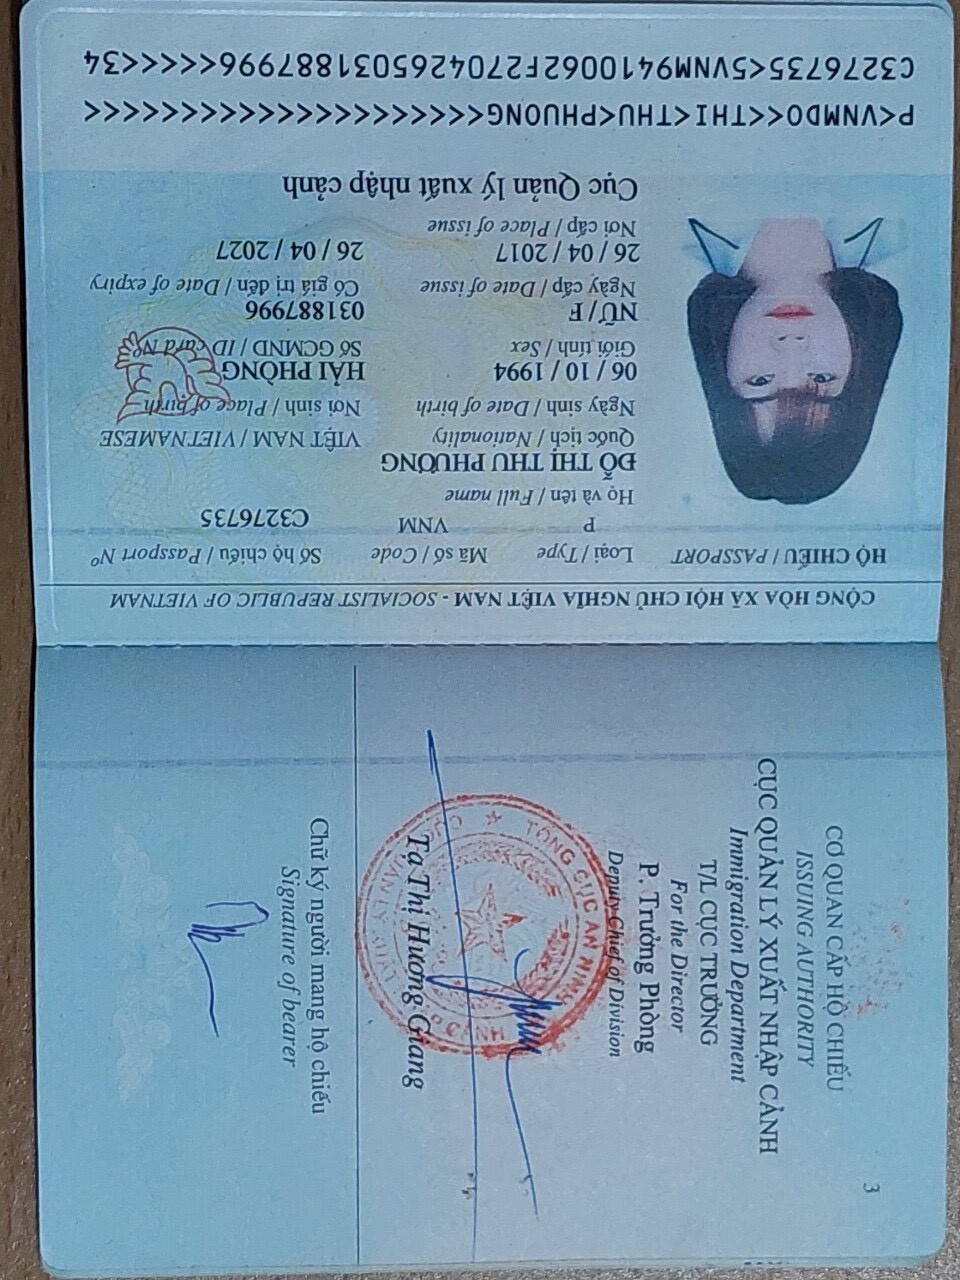 CỘNG HÒA XÃ HỘI CHỦ NGHĨA VIỆT NAM - SOCIALIST REPUBLIC OF VIETNAM
HỘ CHIẾU / PASSPORT
Loại / Type
Mã số / Code
Số hộ chiếu / Passport Nº
P
VNM
C3276735
Họ và tên / Full name
ĐỖ THỊ THU PHƯƠNG
Quốc tịch / Nationality
VIỆT NAM / VIETNAMESE
Ngày sinh / Date of birth
Nơi sinh / Place of birth
06 / 10 / 1994
HẢI PHÒNG
Giới tính / Sex
Số GCMND / ID card Nº
NỮ / F
031887996
Ngày cấp / Date of issue
Có giá trị đến / Date of expiry
26 / 04 / 2017
26 / 04 / 2027
Nơi cấp / Place of issue
Cục Quản lý xuất nhập cảnh
P<VNMDO<<THI<THU<PHUONG<<<<<<<<<<<<<<<<<<<<<
C3276735<5VNM9410062F2704265031887996<<<<<34
CƠ QUAN CẤP HỘ CHIẾU
ISSUING AUTHORITY
CỤC QUẢN LÝ XUẤT NHẬP CẢNH
Immigration Department
T/L CỤC TRƯỞNG
For the Director
P. Trưởng Phòng
Deputy Chief of Division
TỔNG CỤC AN NINH
Tạ Thị Hương Giang
Chữ ký người mang hộ chiếu
Signature of bearer
3